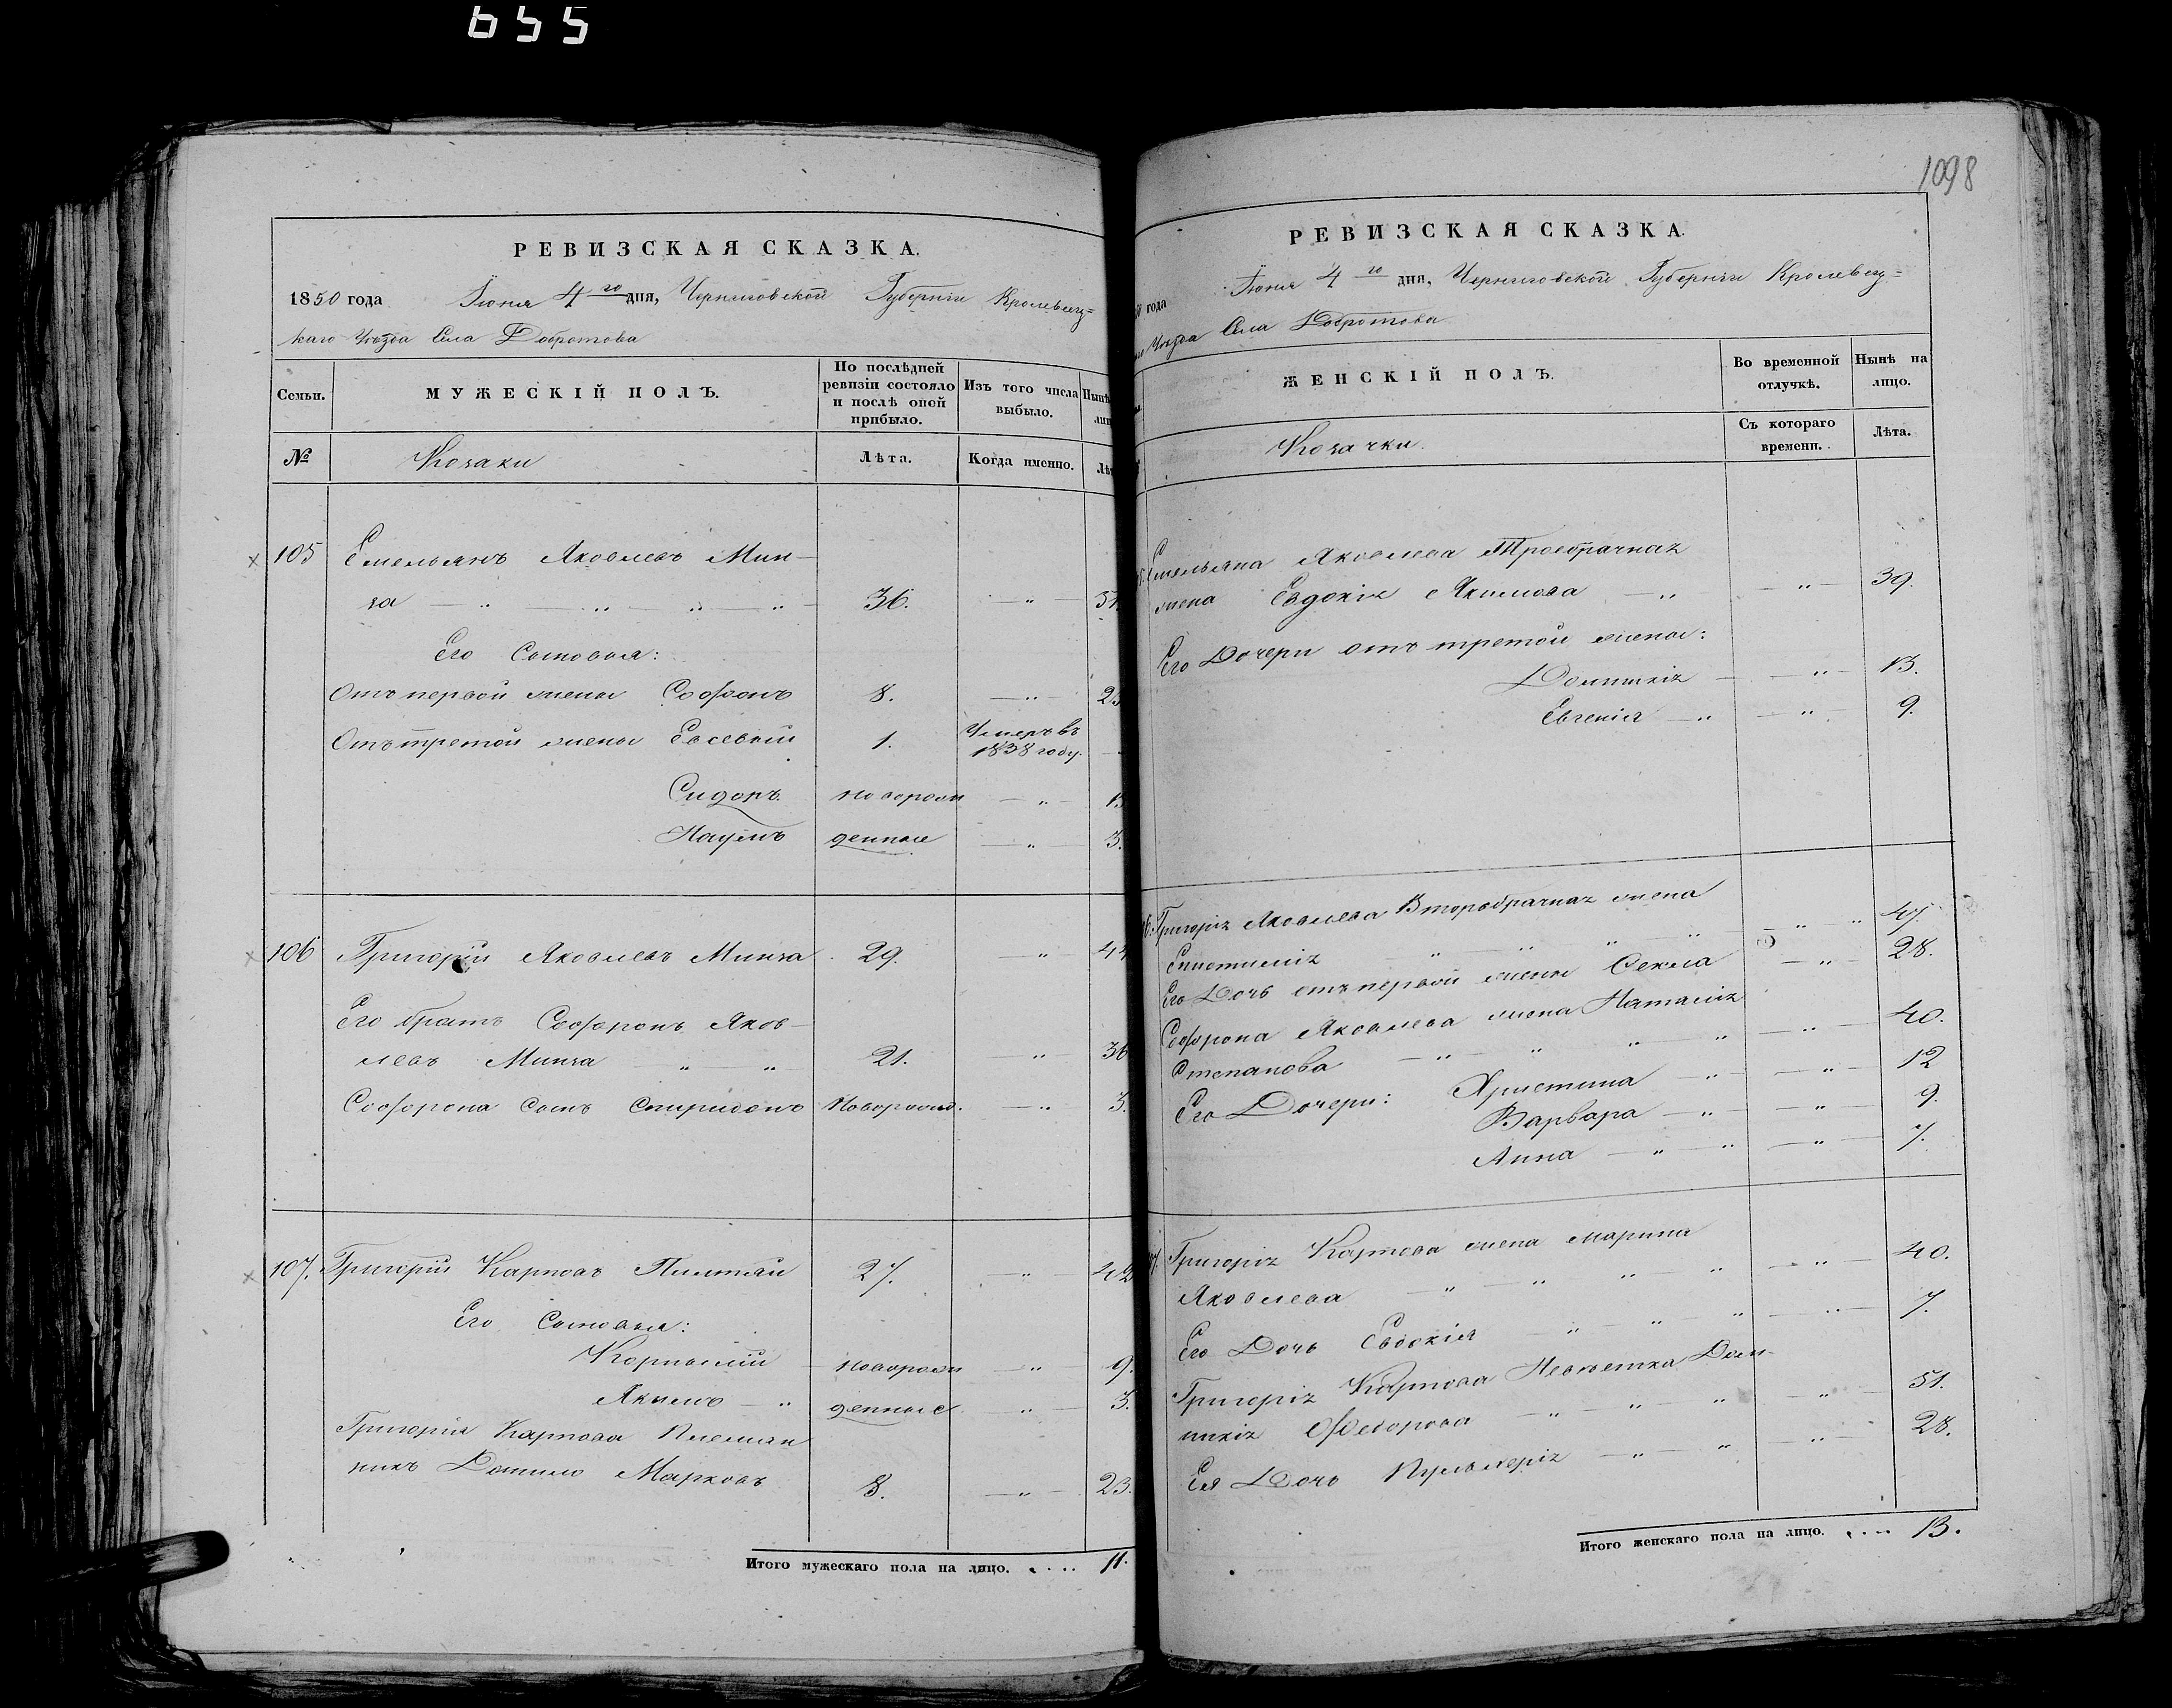 655
РЕВИЗСКАЯ СКАЗКА.
1850 года Іюня 4го дня, Черниговской Губерніи Кролевец=
каго Уѣзда Села Добротова
Семьи.
МУЖЕСКІЙ ПОЛЪ.
По послѣдней ревизіи состояло и послѣ оной прибыло.
Изъ того числа выбыло.
Нынѣ
№
Козаки
Лѣта.
Когда именно.
105 Емельянъ Яковлевъ Мин–
за — „ — „ „ — „ — 36. — „ —
Его Сыновья:
Отъ первой жены Софонъ 8. — „ —
Отъ третой жены Евсевій 1. Умеръ въ 1838 году.
Сидоръ новорож — „ —
Наумъ денные — „ — 3.
106 Григорій Яковлевъ Минза 29. — „ — 44
Его братъ Софронъ Яков–
левъ Минза — „ — „ 21. „ — 36
Софрона Сынъ Спиридонъ Новорожд. — „ 3.
107. Григорій Карповъ 27. — „ — 42
Его Сыновья:
Корнилій новорож — „ — 9.
Якимъ — „ денные „ — 3.
Григорія Карпова Племян
никъ Данило Марковъ 8. — „ — 23.
Итого мужескаго пола на лицо. . . . . 11.
1098
РЕВИЗСКАЯ СКАЗКА.
года Іюня 4го дня, Черниговской Губерніи Кролевец=
Уѣзда Села Добротова
ЖЕНСКІЙ ПОЛЪ.
Во временной отлучкѣ.
Нынѣ на лицо.
Козачки.
Съ котораго времени.
Лѣта.
Емельяна Яковлева Троебрачная
жена Евдокія Якимова — „ — „ — 39.
Его Дочери отъ третой жены:
Домникія — — „ — 13.
Евгенія — „ — „ — 9.
Григорія Яковлева Второбрачная жена
Епистимія — „ — „ „ — „ — „ „ 47
Его Дочь отъ первой жены Фекла — „ — 28.
Софрона Яковлева жена Наталія
Степанова — „ „ „ „ — „ — 40.
Его Дочери: Христина „ — „ — 12
Варвара — „ — — „ — 9.
Анна — „ — „ — „ — 7.
Григорія Карпова жена Марина
Яковлева „ — „ „ „ — „ — 40.
Его Дочь Евдокія — „ — „ — „ — „ — 7.
Григорія Карпова Невѣстка Дом–
никія Федорова — „ — „ — „ — „ — 51.
Ея Дочь Пульхерія — „ — „ — „ — 28.
Итого женскаго пола на лицо. . . . . 13.